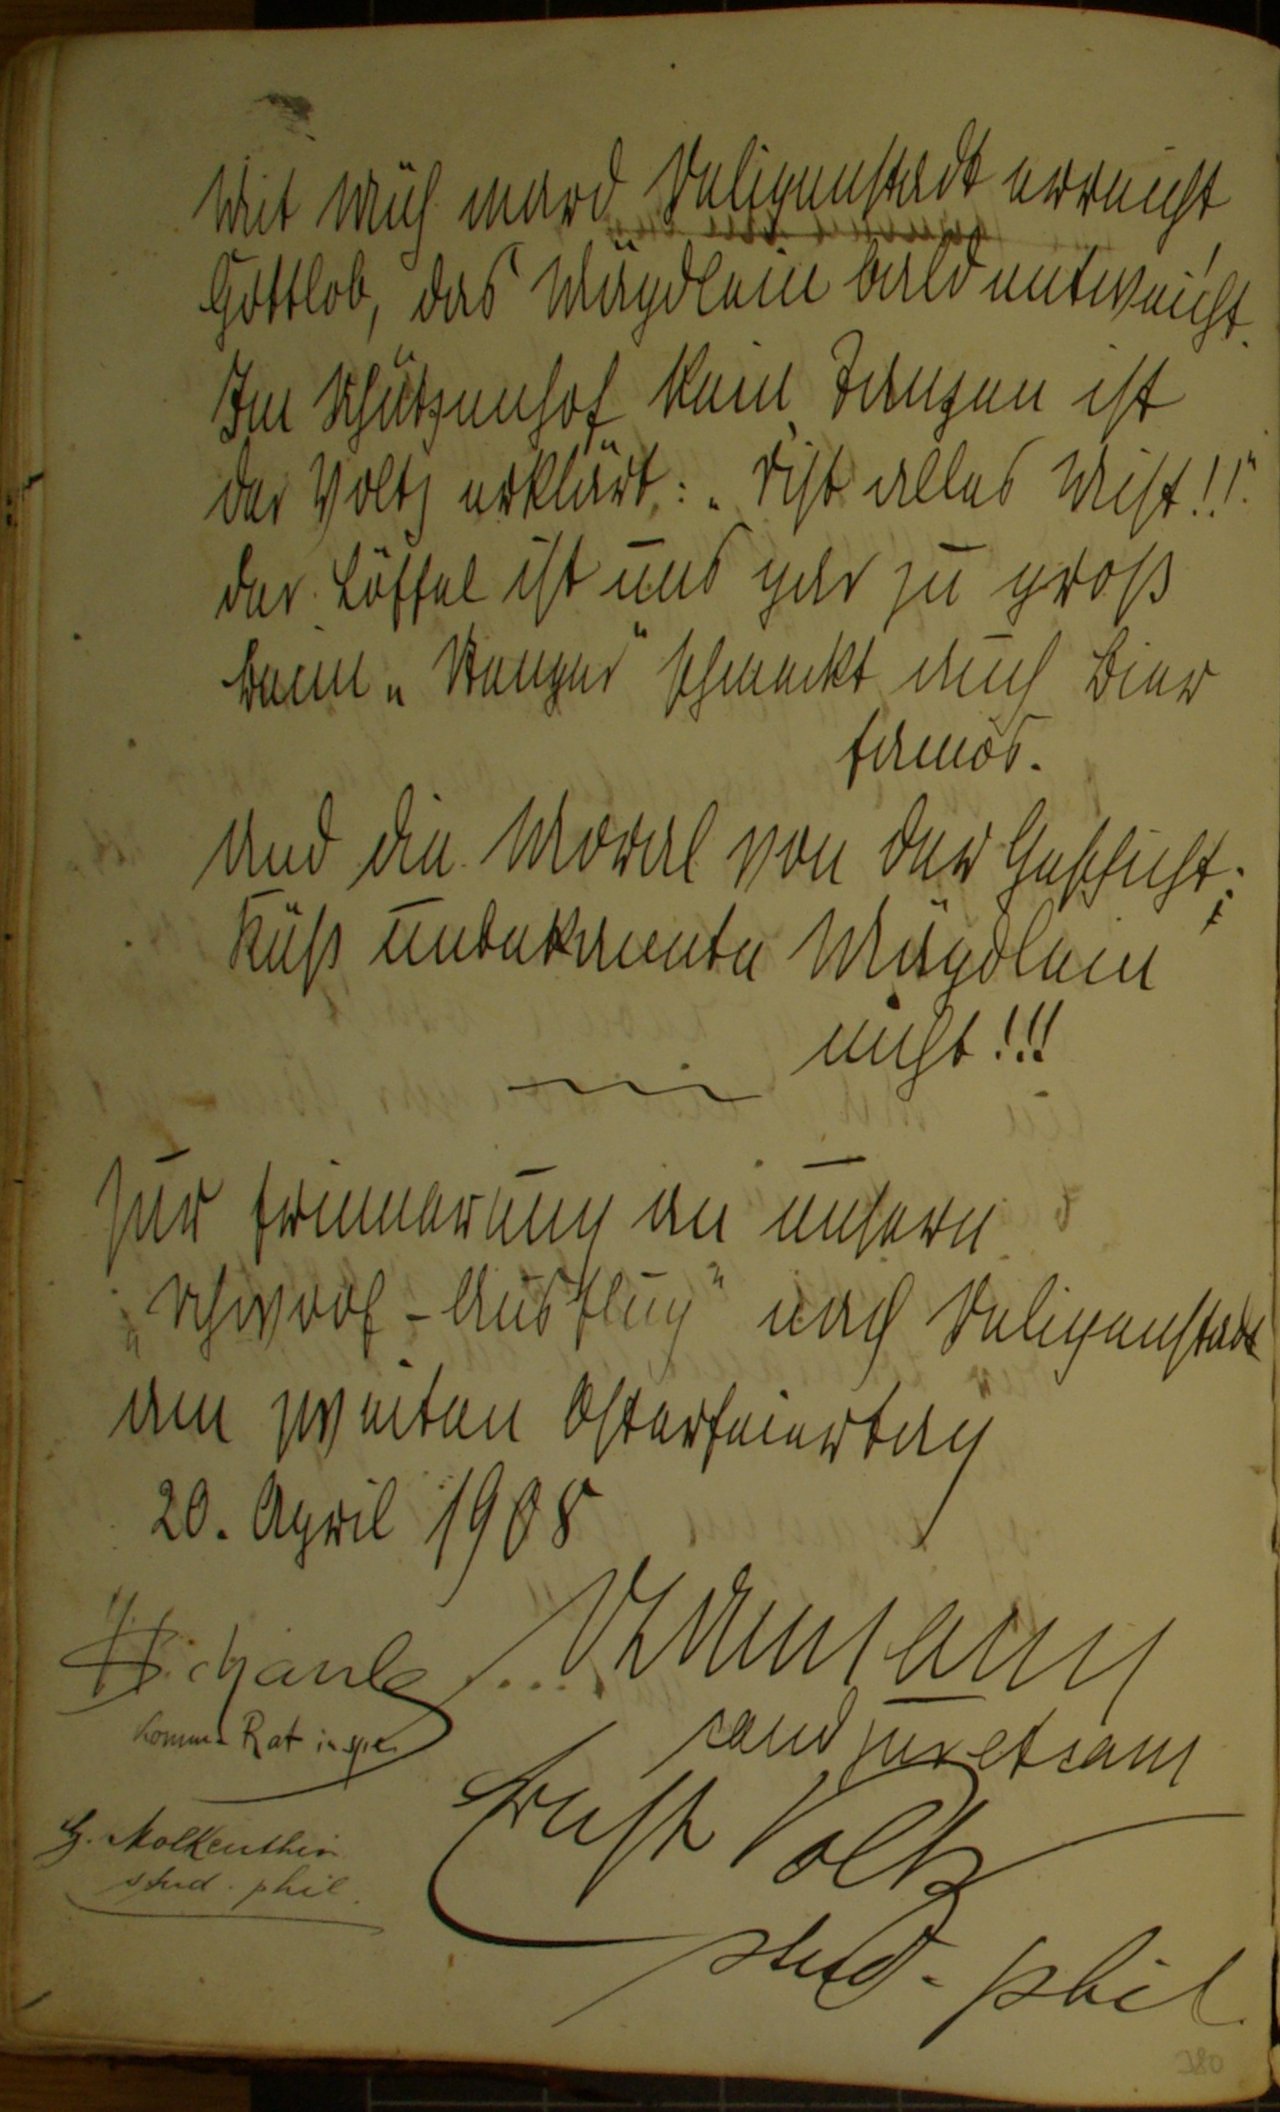 Mit Müh ward Seligenstadt erreicht
Gottlob, das Mägdlein bald entweicht.
Im Schützenhof kein Tanzen ist
der Voltz erklärt: „S'ist alles Mist!!“
der Löffel ist uns gar zu groß
beim „Stenger“ schmeckt auch Bier
famos.
Und die Moral von der Geschicht:
Küß unbekannte Mägdlein
nicht!!!
Zur Erinnerung an unsern
„Schwoof-Ausflug“ nach Seligenstadt
am zweiten Osterfeiertag
20. April 1908
cand jur et cam
Komm. Rat in spe.
Ernst Voltz
G. Molkenthin
stud. phil.
stud. phil.
380